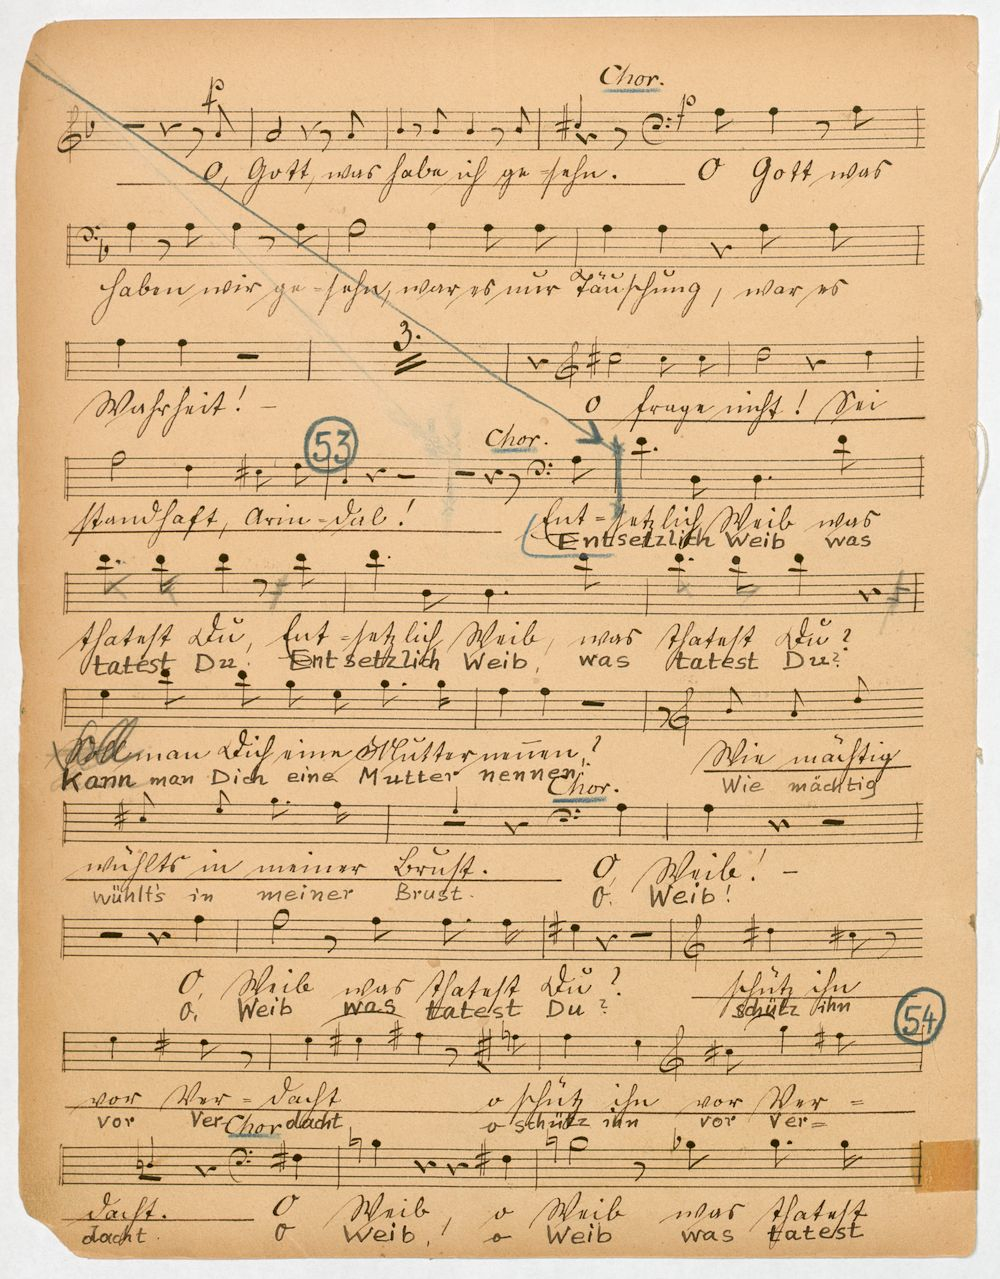 Chor.
O, Gott, was habe ich ge-sehn. O Gott was
haben wir ge-sehn, war es nur Täuschung, war es
3.
Wahrheit! - O frage nicht! Sei
53
Chor.
standhaft, Arin-dal! Ent-setzlich Weib was
Entsetzlich Weib was
thatest Du, Ent-setzlich Weib, was thatest Du?
tatest Du. Entsetzlich Weib, was tatest Du?
Soll man Dich eine Mutter nennen? Wie mächtig
Kann man Dich eine Mutter nennen, Wie mächtig
Chor.
wühlts in meiner Brust. O, Weib! -
wühlt's in meiner Brust. O. Weib!
O, Weib was thatest Du? schütz ihn
O, Weib was tatest Du? schütz ihn
54
vor Ver-dacht o schütz ihn vor Ver=
vor Verdacht o schütz ihn vor Ver=
Chor
dacht. O Weib, o Weib was thatest
dacht. O Weib! o Weib was tatest